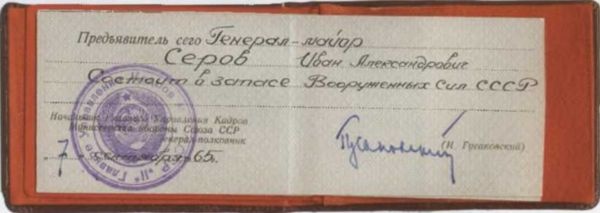 Предъявитель сего Генерал-майор
Серов Иван Александрович
Состоит в запасе Вооруженных Сил СССР
Начальник Главного Управления Кадров
Министерства обороны Союза ССР
генерал-полковник
Гусаковский
(И. Гусаковский)
7 65г.
Главное управление кадров